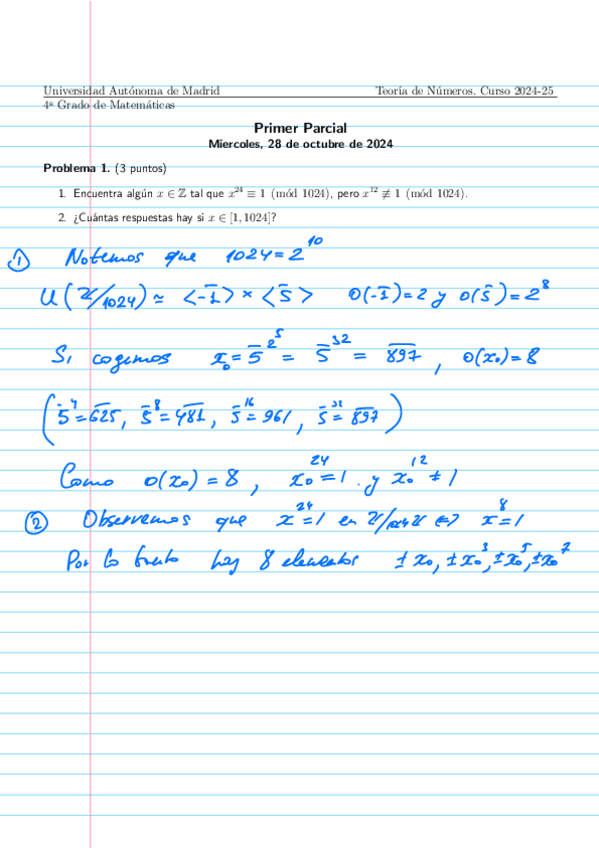 Universidad Autónoma de Madrid Teoría de Números. Curso 2024-25
4º Grado de Matemáticas
Primer Parcial
Miercoles, 28 de octubre de 2024
Problema 1. (3 puntos)
1. Encuentra algún x ∈ ℤ tal que x²⁴ ≡ 1 (mód 1024), pero x¹² ≢ 1 (mód 1024).
2. ¿Cuántas respuestas hay si x ∈ [1, 1024]?
① Notemos que 1024 = 2¹⁰
U(ℤ/1024) ≃ <-1̄> × <5̄> O(-1̄)=2 y O(5̄)=2⁸
Si cogemos x₀ = 5̄^(2⁵) = 5̄³² = 897̄, O(x₀)=8
(5̄⁴=625̄, 5̄⁸=481̄, 5̄¹⁶=961, 5̄³²=897̄)
Como O(x₀) = 8, x₀²⁴=1 . y x₀¹² ≠ 1
② Observemos que x²⁴=1 en ℤ/1024ℤ ⇔ x⁸=1
Por lo tanto hay 8 elementos ±x₀, ±x₀³, ±x₀⁵, ±x₀⁷